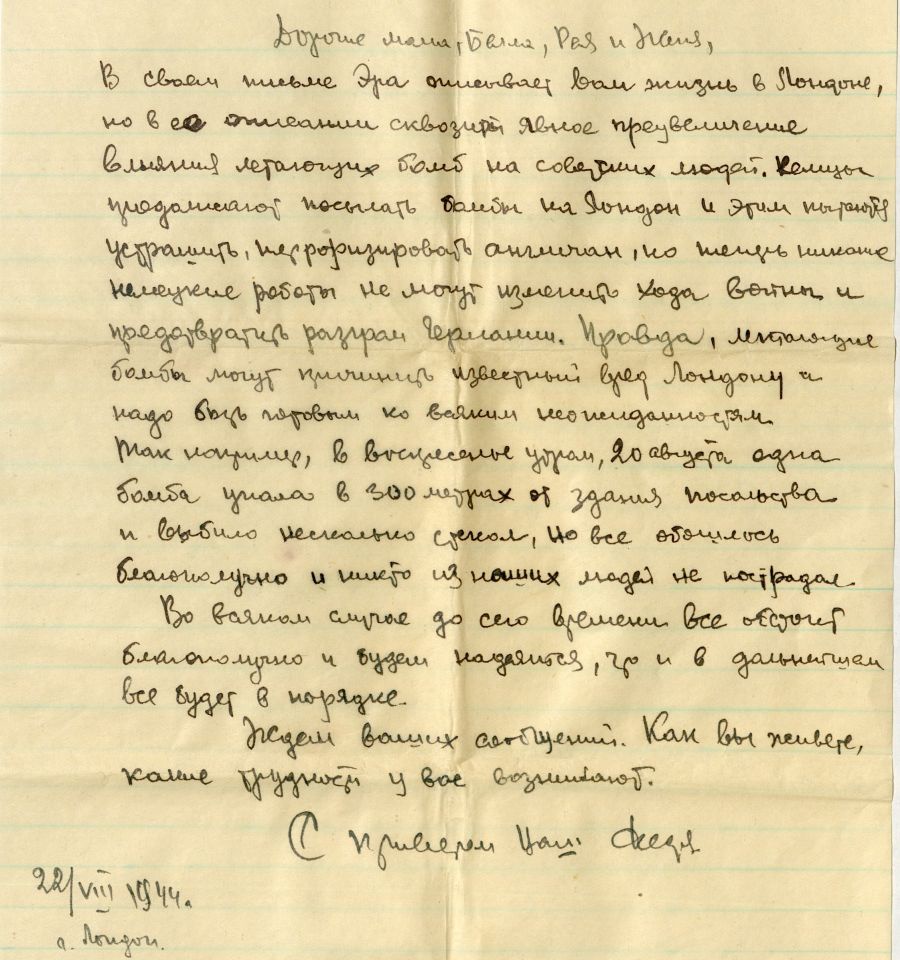 Дорогие мама, Бэлла, Рая и Женя,
В своем письме Эра описывает вам жизнь в Лондоне,
но в ее описании сквозит явное преувеличение
влияния летающих бомб на советских людей. Немцы
продолжают посылать бомбы на Лондон и этим пытаются
устрашить, терроризировать англичан, но теперь никакие
немецкие работы не могут изменить хода войны и
предотвратить разгром Германии. Правда, летающие
бомбы могут причинить известный вред Лондону и
надо быть готовым ко всяким неожиданностям.
Так например, в воскресенье утром, 20 августа одна
бомба упала в 300 метрах от здания посольства
и выбило несколько стекол, но все обошлось
благополучно и никто из наших людей не пострадал.
Во всяком случае до сего времени все обстоит
благополучно и будем надеяться, что и в дальнейшем
все будет в порядке.
Ждем ваших сообщений. Как вы живете,
какие трудности у вас возникают.
С приветом Ваш Федя
22/VIII 1944.
г. Лондон.